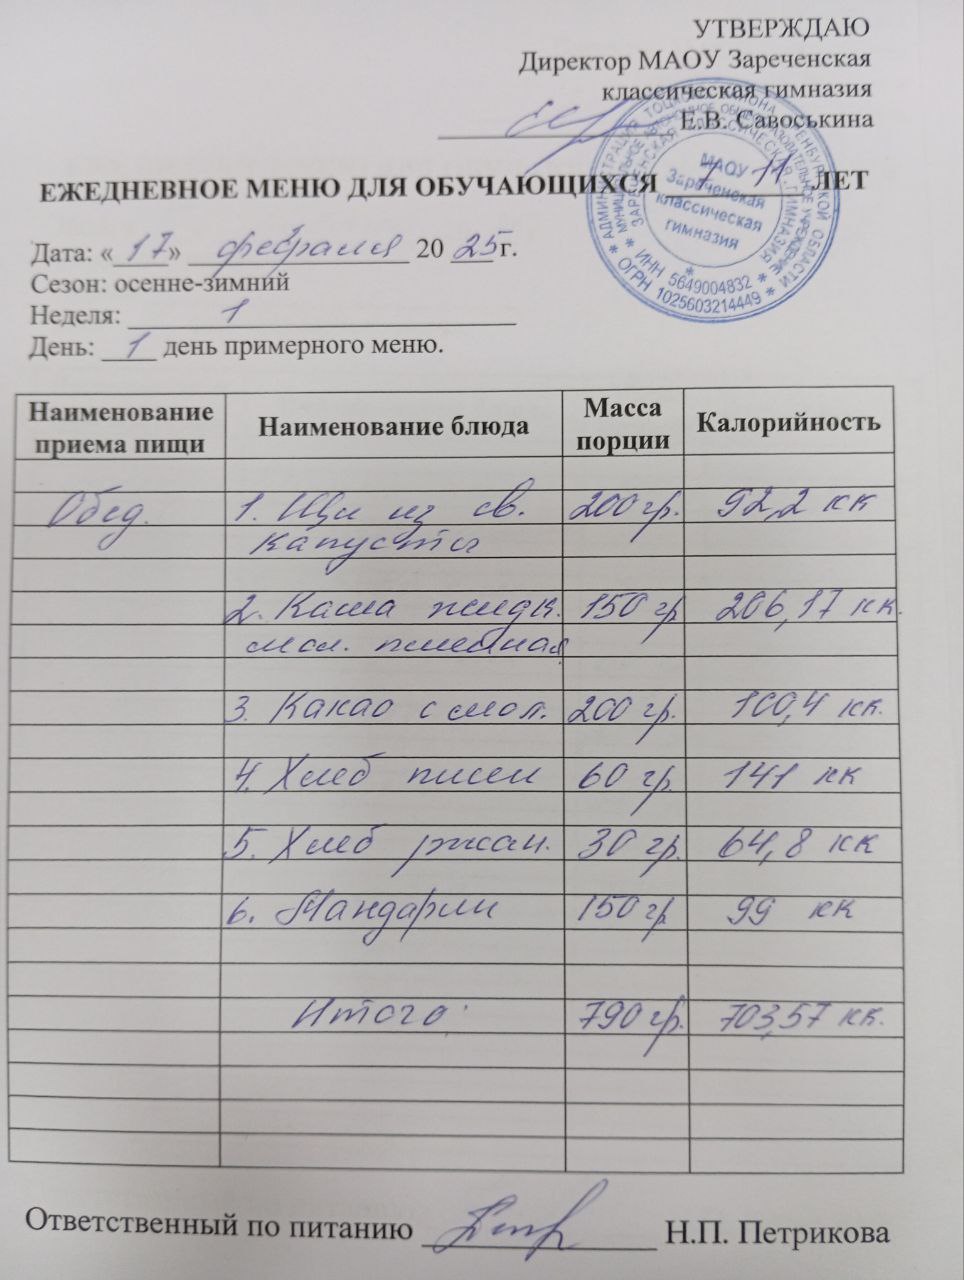 УТВЕРЖДАЮ
Директор МАОУ Зареченская
классическая гимназия
Е.В. Савоськина
ЕЖЕДНЕВНОЕ МЕНЮ ДЛЯ ОБУЧАЮЩИХСЯ 7 - 11 ЛЕТ
МАОУ
Зареченская
классическая
гимназия
* ИНН 5649004832 *
* ОГРН 1025603214449 *
Дата: «17» февраля 20 25г.
Сезон: осенне-зимний
Неделя: 1
День: 1 день примерного меню.
Наименование приема пищи Наименование блюда Масса порции Калорийность
Обед. 1. Щи из св. 200 гр. 92,2 кк
капусты
2. Каша жидк. 150 гр 206,17 кк.
мол. пшенная
3. Какао с мол. 200 гр. 100,4 кк.
4. Хлеб пшен 60 гр. 141 кк
5. Хлеб ржан. 30 гр. 64,8 кк
6. Мандарин 150 гр 99 кк
Итого: 790 гр. 703,57 кк.
Ответственный по питанию Н.П. Петрикова